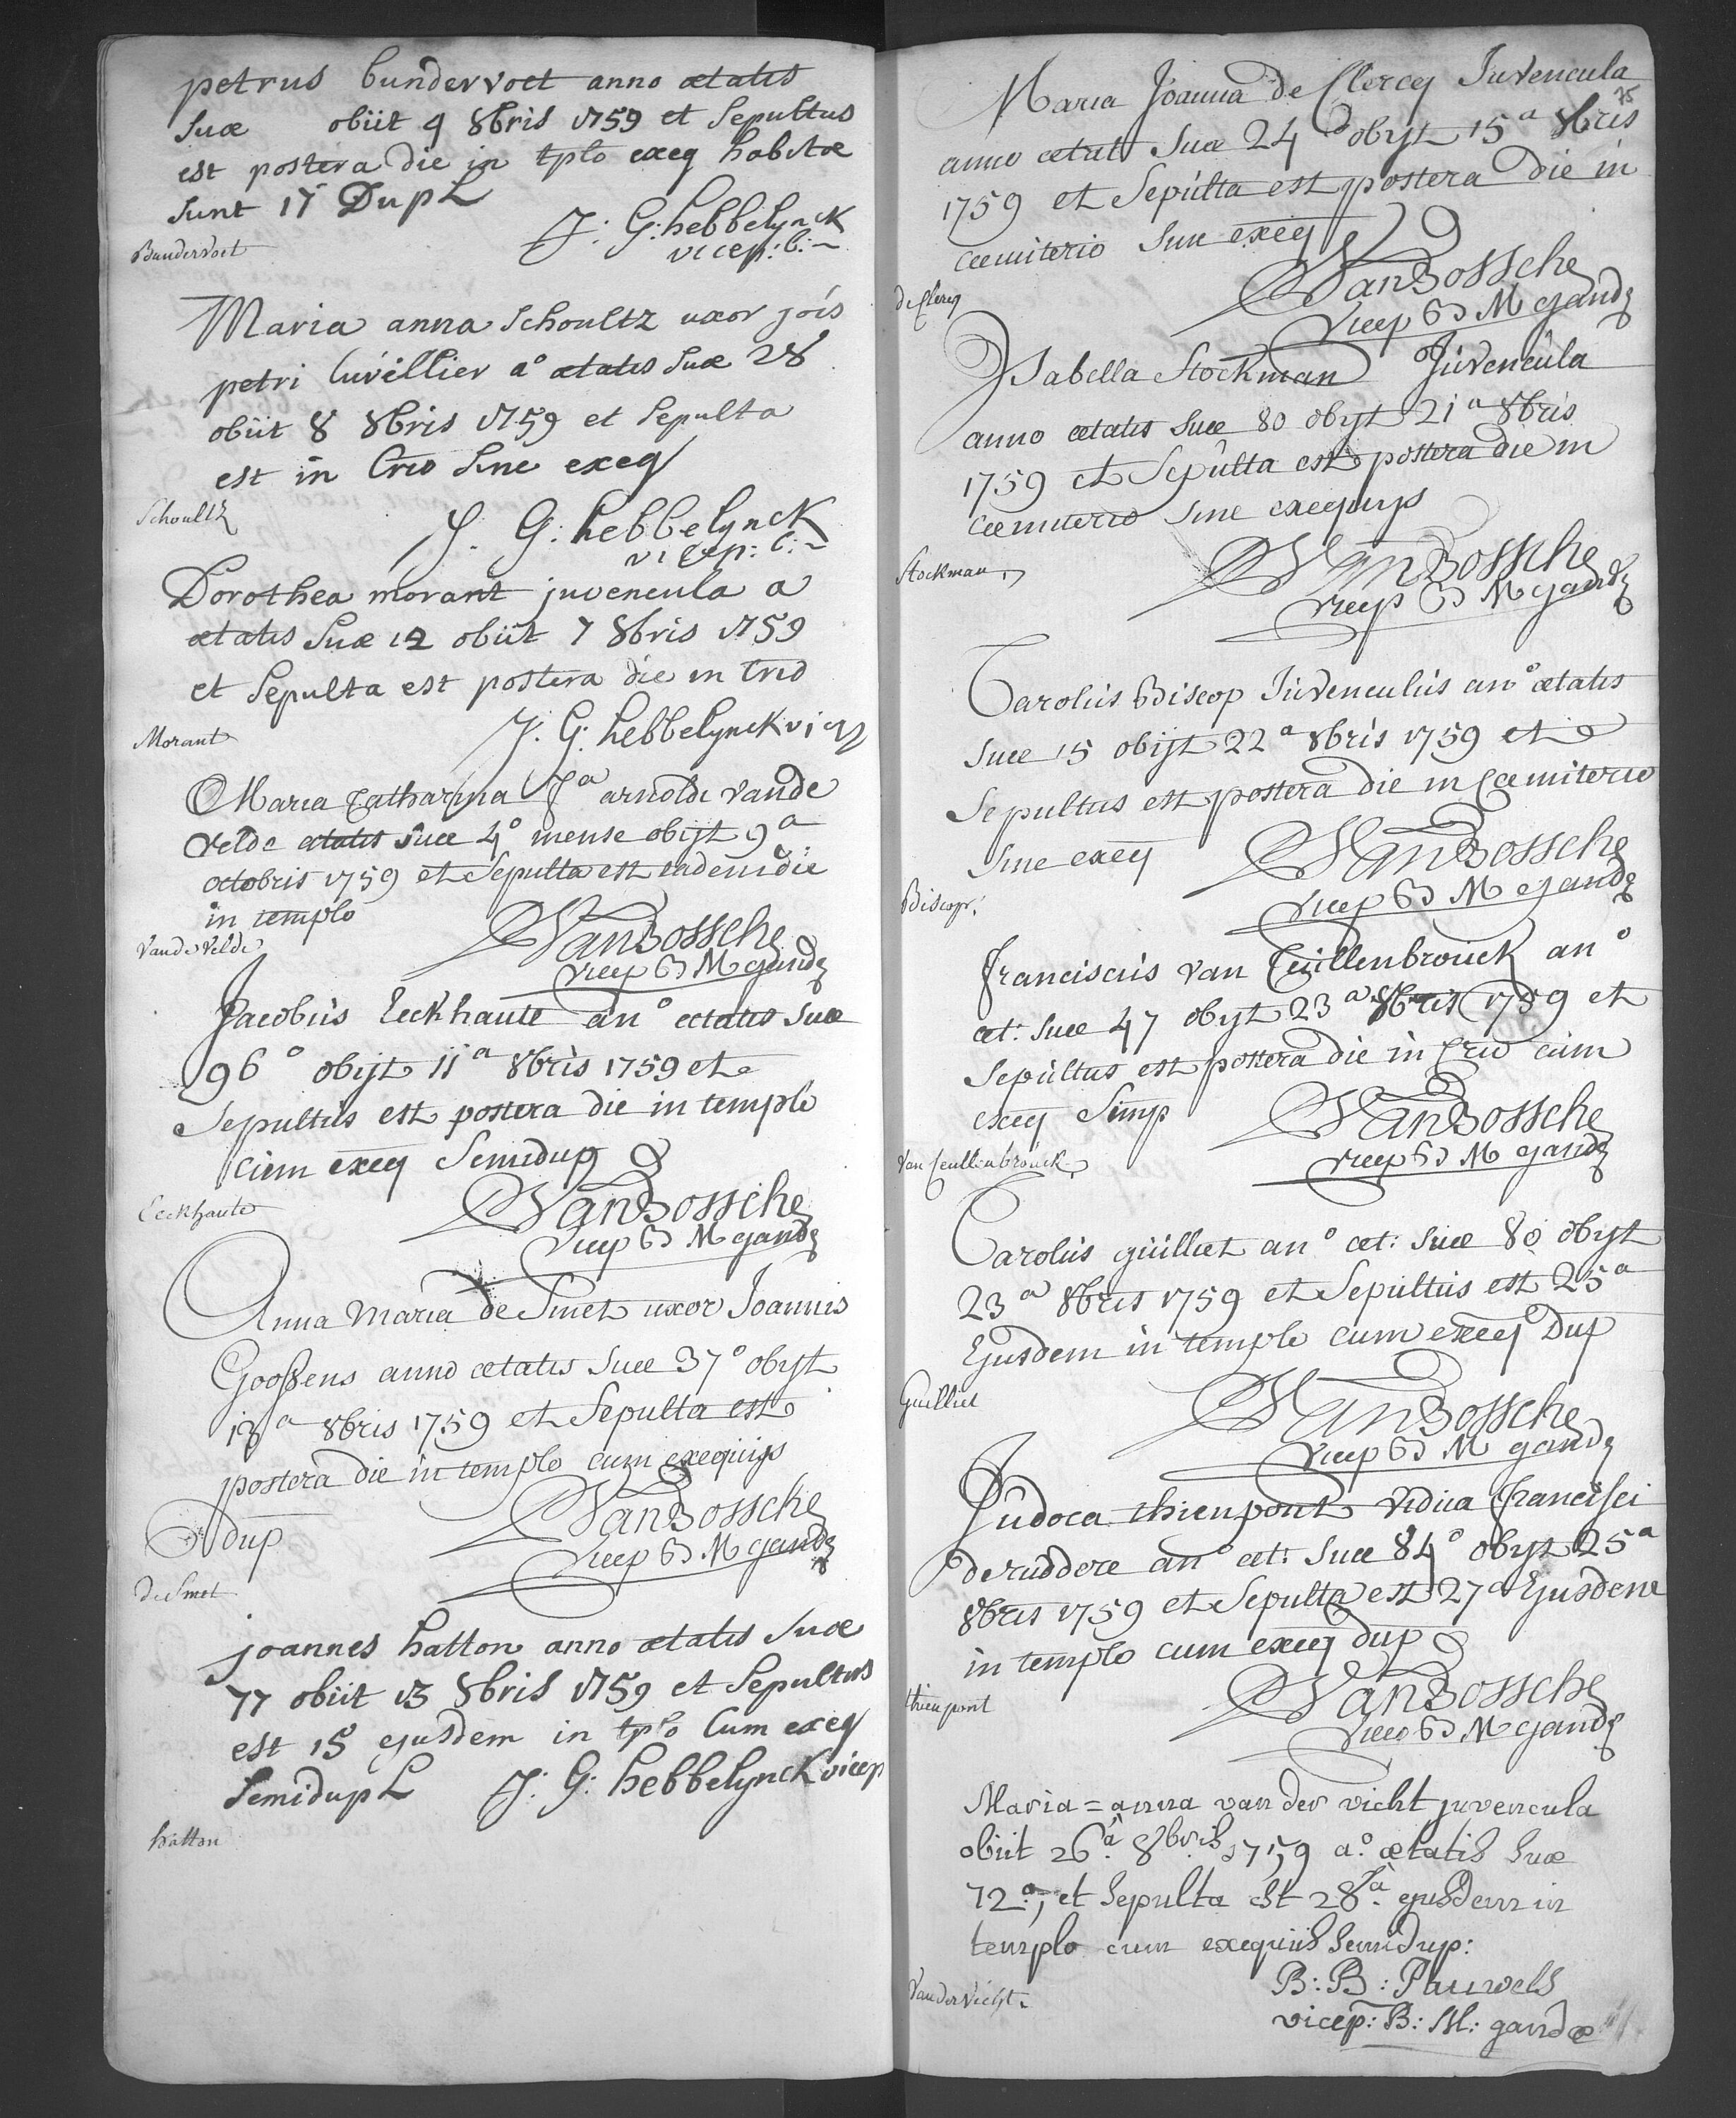 petrus bundervoet anno ætatis
suæ obiit 9 8bris 1759 et sepultus
est postera die in tplo exeq habitæ
sunt 17 Dupl
J: G: hebbelynck
vicep: b:
Bundervoet
Maria anna Schoultz uxor jois
petri Cuvillier a° ætatis suæ 28
obiit 8 8bris 1759 et sepulta
est in Crio sine exeq
J. G: hebbelynck
vicep: b:
Schoultz
Dorothea morant juvencula a
ætatis suæ 12 obiit 7 8bris 1759
et sepulta est postera die in Crio
J. G: hebbelynck vicep
Morant
Maria Catharina fa arnoldi vande
velde ætatis suæ 4° mense obijt 9a
octobris 1759 et sepulta est eadem die
in templo
VanBossche
vicep B M gandæ
Vande Velde
Jacobus Eeckhaute an° ætatis suæ
96° obijt 11a 8bris 1759 et
sepultus est postera die in templo
cum exeq semidup
VanBossche
vicep B M gandæ
Eeckhaute
Anna Maria de Smet uxor Joannis
Goossens anno ætatis suæ 37° obijt
13a 8bris 1759 et sepulta est
postera die in templo cum exequijs
dup
VanBossche
vicep B M gandæ
De Smet
joannes hatton anno ætatis suæ
77 obiit 13 8bris 1759 et sepultus
est 15 ejusdem in tplo Cum exeq
semidupl J: G: hebbelynck vicep
hatton
75
Maria Joanna de Clercq Juvencula
anno ætatis suæ 24 obijt 15a 8bris
1759 et sepulta est postera die in
cæmiterio sine exeq
VanBossche
vicep B M gandæ
de Clercq
Isabella Stockman Juvencula
anno ætatis suæ 80 obijt 21a 8bris
1759 et sepulta est postera die in
cæmiterio sine exequijs
VanBossche
vicep B M gandæ
Stockman
Carolus Biscop Juvenculus an° ætatis
suæ 15 obijt 22a 8bris 1759 et
sepultus est postera die in Cæmiterio
sine exeq
VanBossche
vicep B M gandæ
Biscop:
franciscus van Ceullenbrouck an°
æt: suæ 47 obijt 23a 8bris 1759 et
sepultus est postera die in Crio cum
exeq simp
VanBossche
vicep B M gandæ
Van Ceullenbrouck
Carolus guilliet an° æt: suæ 80 obijt
23a 8bris 1759 et sepultus est 25a
Ejusdem in templo cum exeq dup
VanBossche
vicep B M gandæ
Guilliet
Judoca thienpont vidua francisci
de ruddere an° æt: suæ 84° obijt 25a
8bris 1759 et sepulta est 27a Ejusdem
in templo cum exeq dup
VanBossche
vicep B M gandæ
thienpont
Maria=anna van der vicht juvencula
obiit 26a. 8bris 1759 a° ætatis suæ
72°, et sepulta est 28a. ejusdem in
templo cum exequiis semidup:
B: B: Pauwels
vicep: B: M: gandæ
Van der Vicht